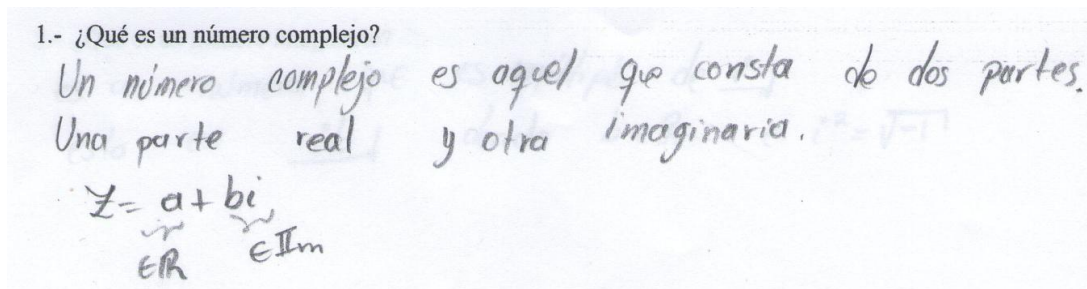 1.- ¿Qué es un número complejo?
Un número complejo es aquel que consta de dos partes.
Una parte real y otra imaginaria.
Z = a + bi
∈ℝ ∈𝕀m